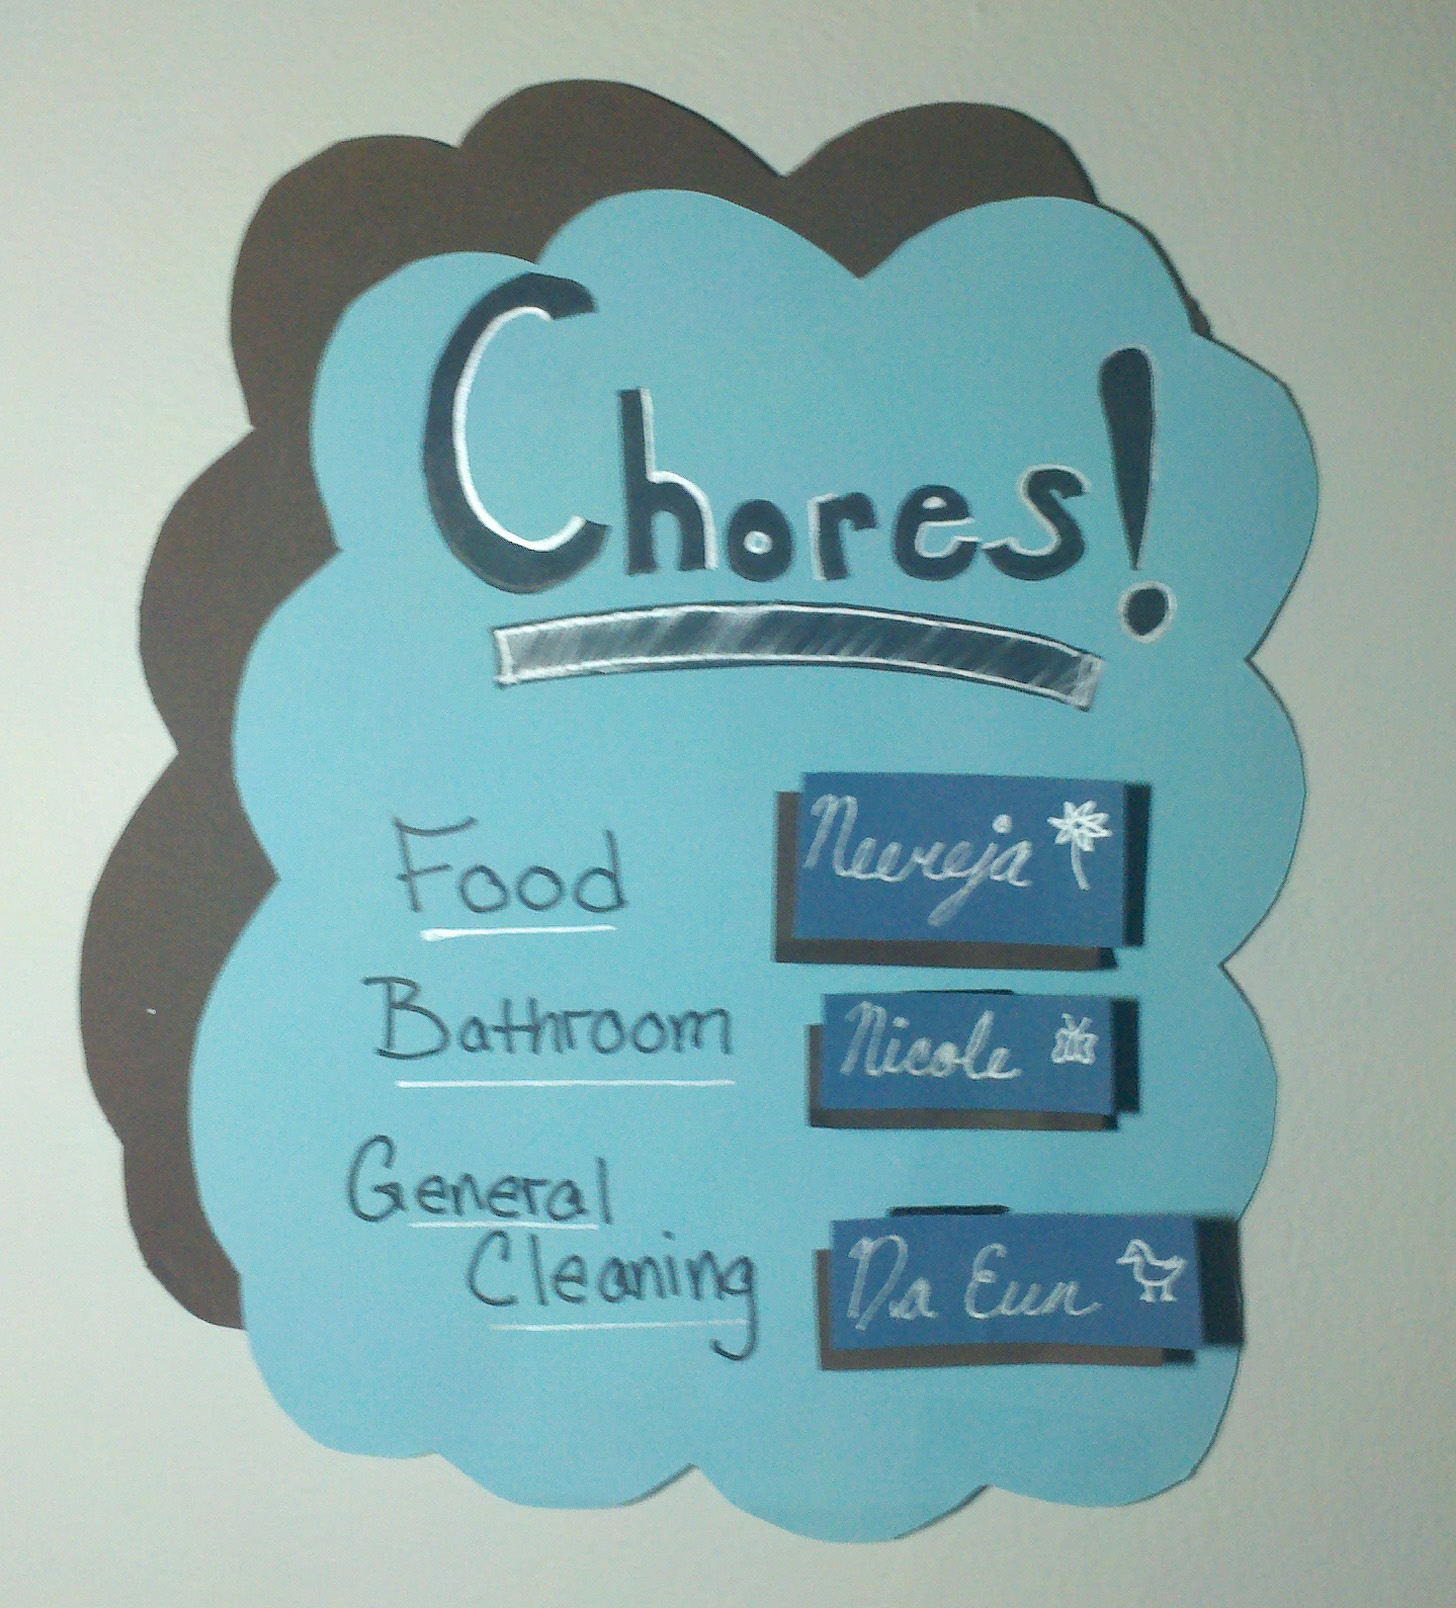 Chores!
Food
Bathroom
Nicole
General
Cleaning
Da Eun